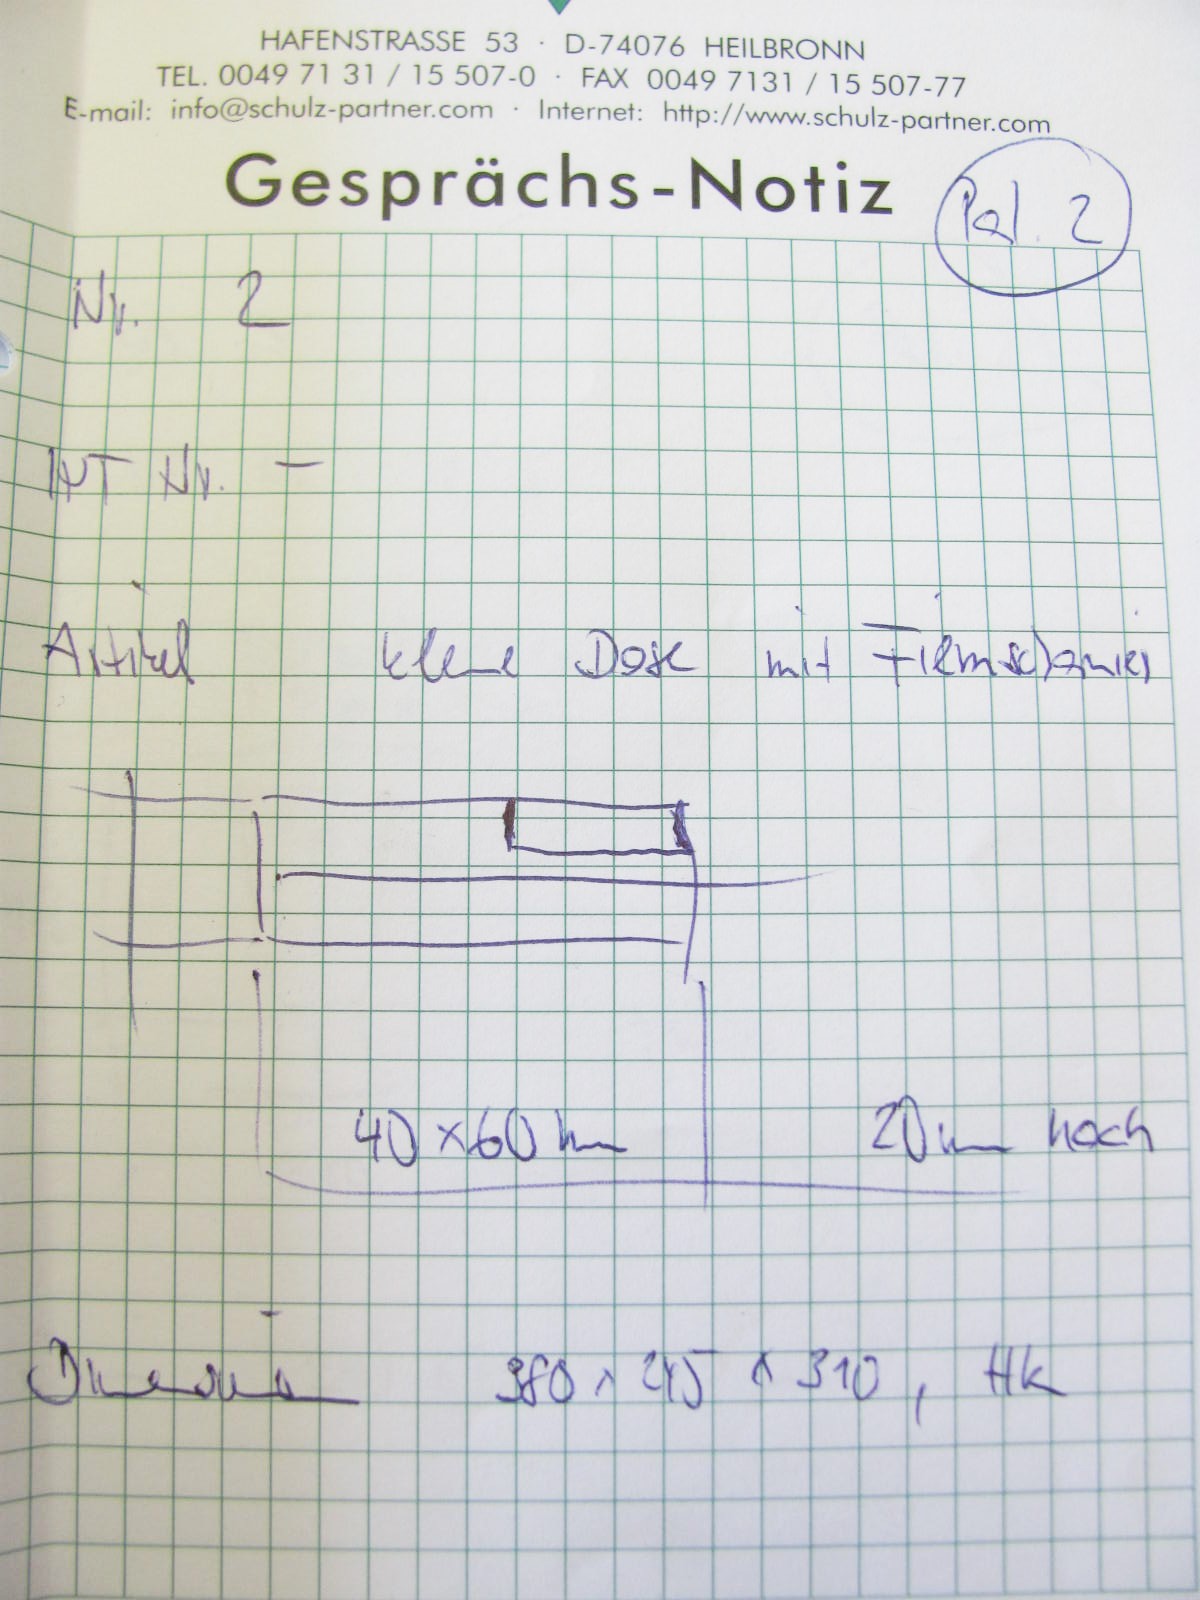 HAFENSTRASSE 53 · D-74076 HEILBRONN
TEL. 0049 71 31 / 15 507-0 · FAX 0049 7131 / 15 507-77
E-mail: info@schulz-partner.com · Internet: http://www.schulz-partner.com
Gesprächs-Notiz
Pal. 2
Nr. 2
Nr. –
Artikel kleine Dose mit Filmscharnier
40 x 60 mm 20 mm hoch
Dimension 380 x 245 x 310, HK